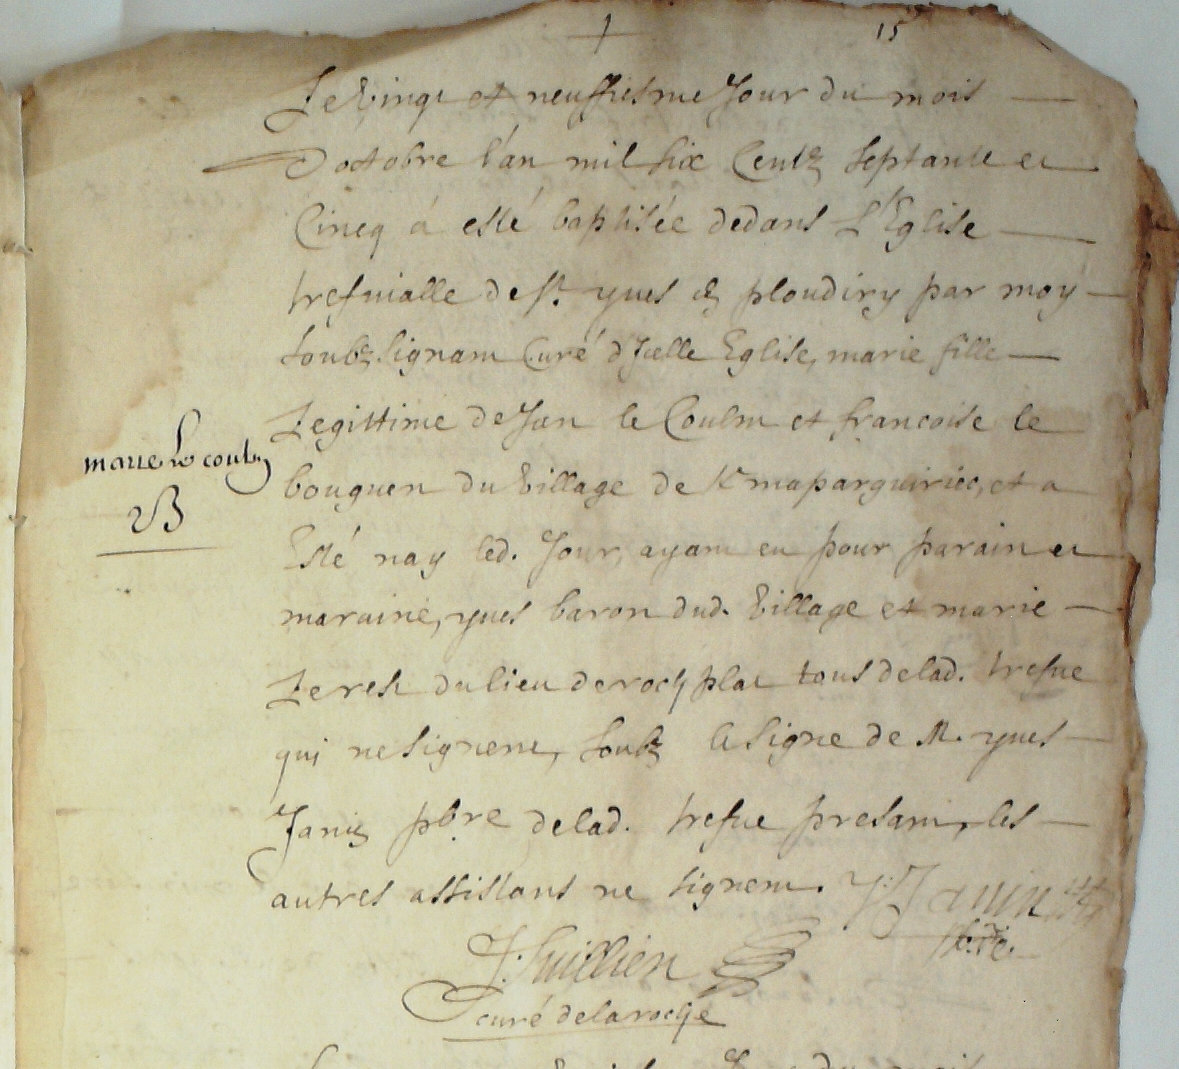 15
Le Vingt et neuffiesme Jour du mois
Doctobre l'an mil six Centz septante et
Cincq á esté baptisée dedans L'Eglise
trefuialle de St yues en ploudiry par moy
soubz signant Curé d'Jcelle Eglise, marie fille
Legittime de Jan le Coulm et francoise le
bouguen du Village de Kmaparguiriec, et a
Esté nay led. Jour, ayant eu pour parain et
maraine, yues baron dud. Village et marie
Le rest du lieu de rochplat tous de lad. trefue
qui ne signent, soubz le signe de M. yues
Janiz pbre de lad. trefue presant, les
autres assistans ne signent. Y: Janin
pbre.
marie Le coulm
B
J: Guillien
curé de laroche